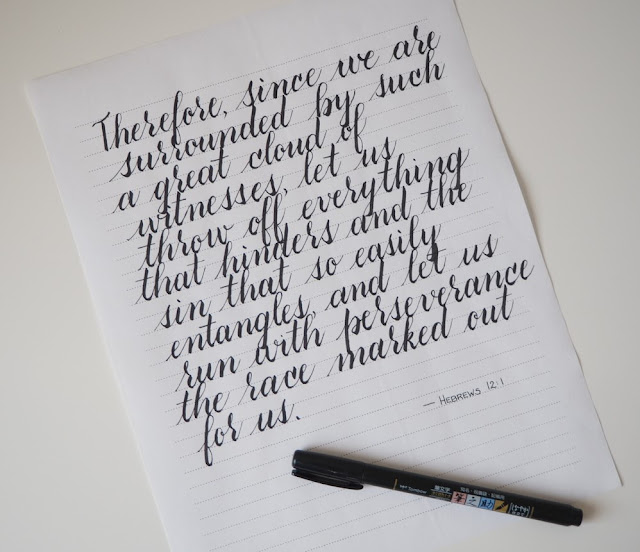 Therefore, since we are
surrounded by such
a great cloud of
witnesses, let us
throw off everything
that hinders and the
sin that so easily
entangles, and let us
run with perseverance
the race marked out
for us.
— HEBREWS 12:1